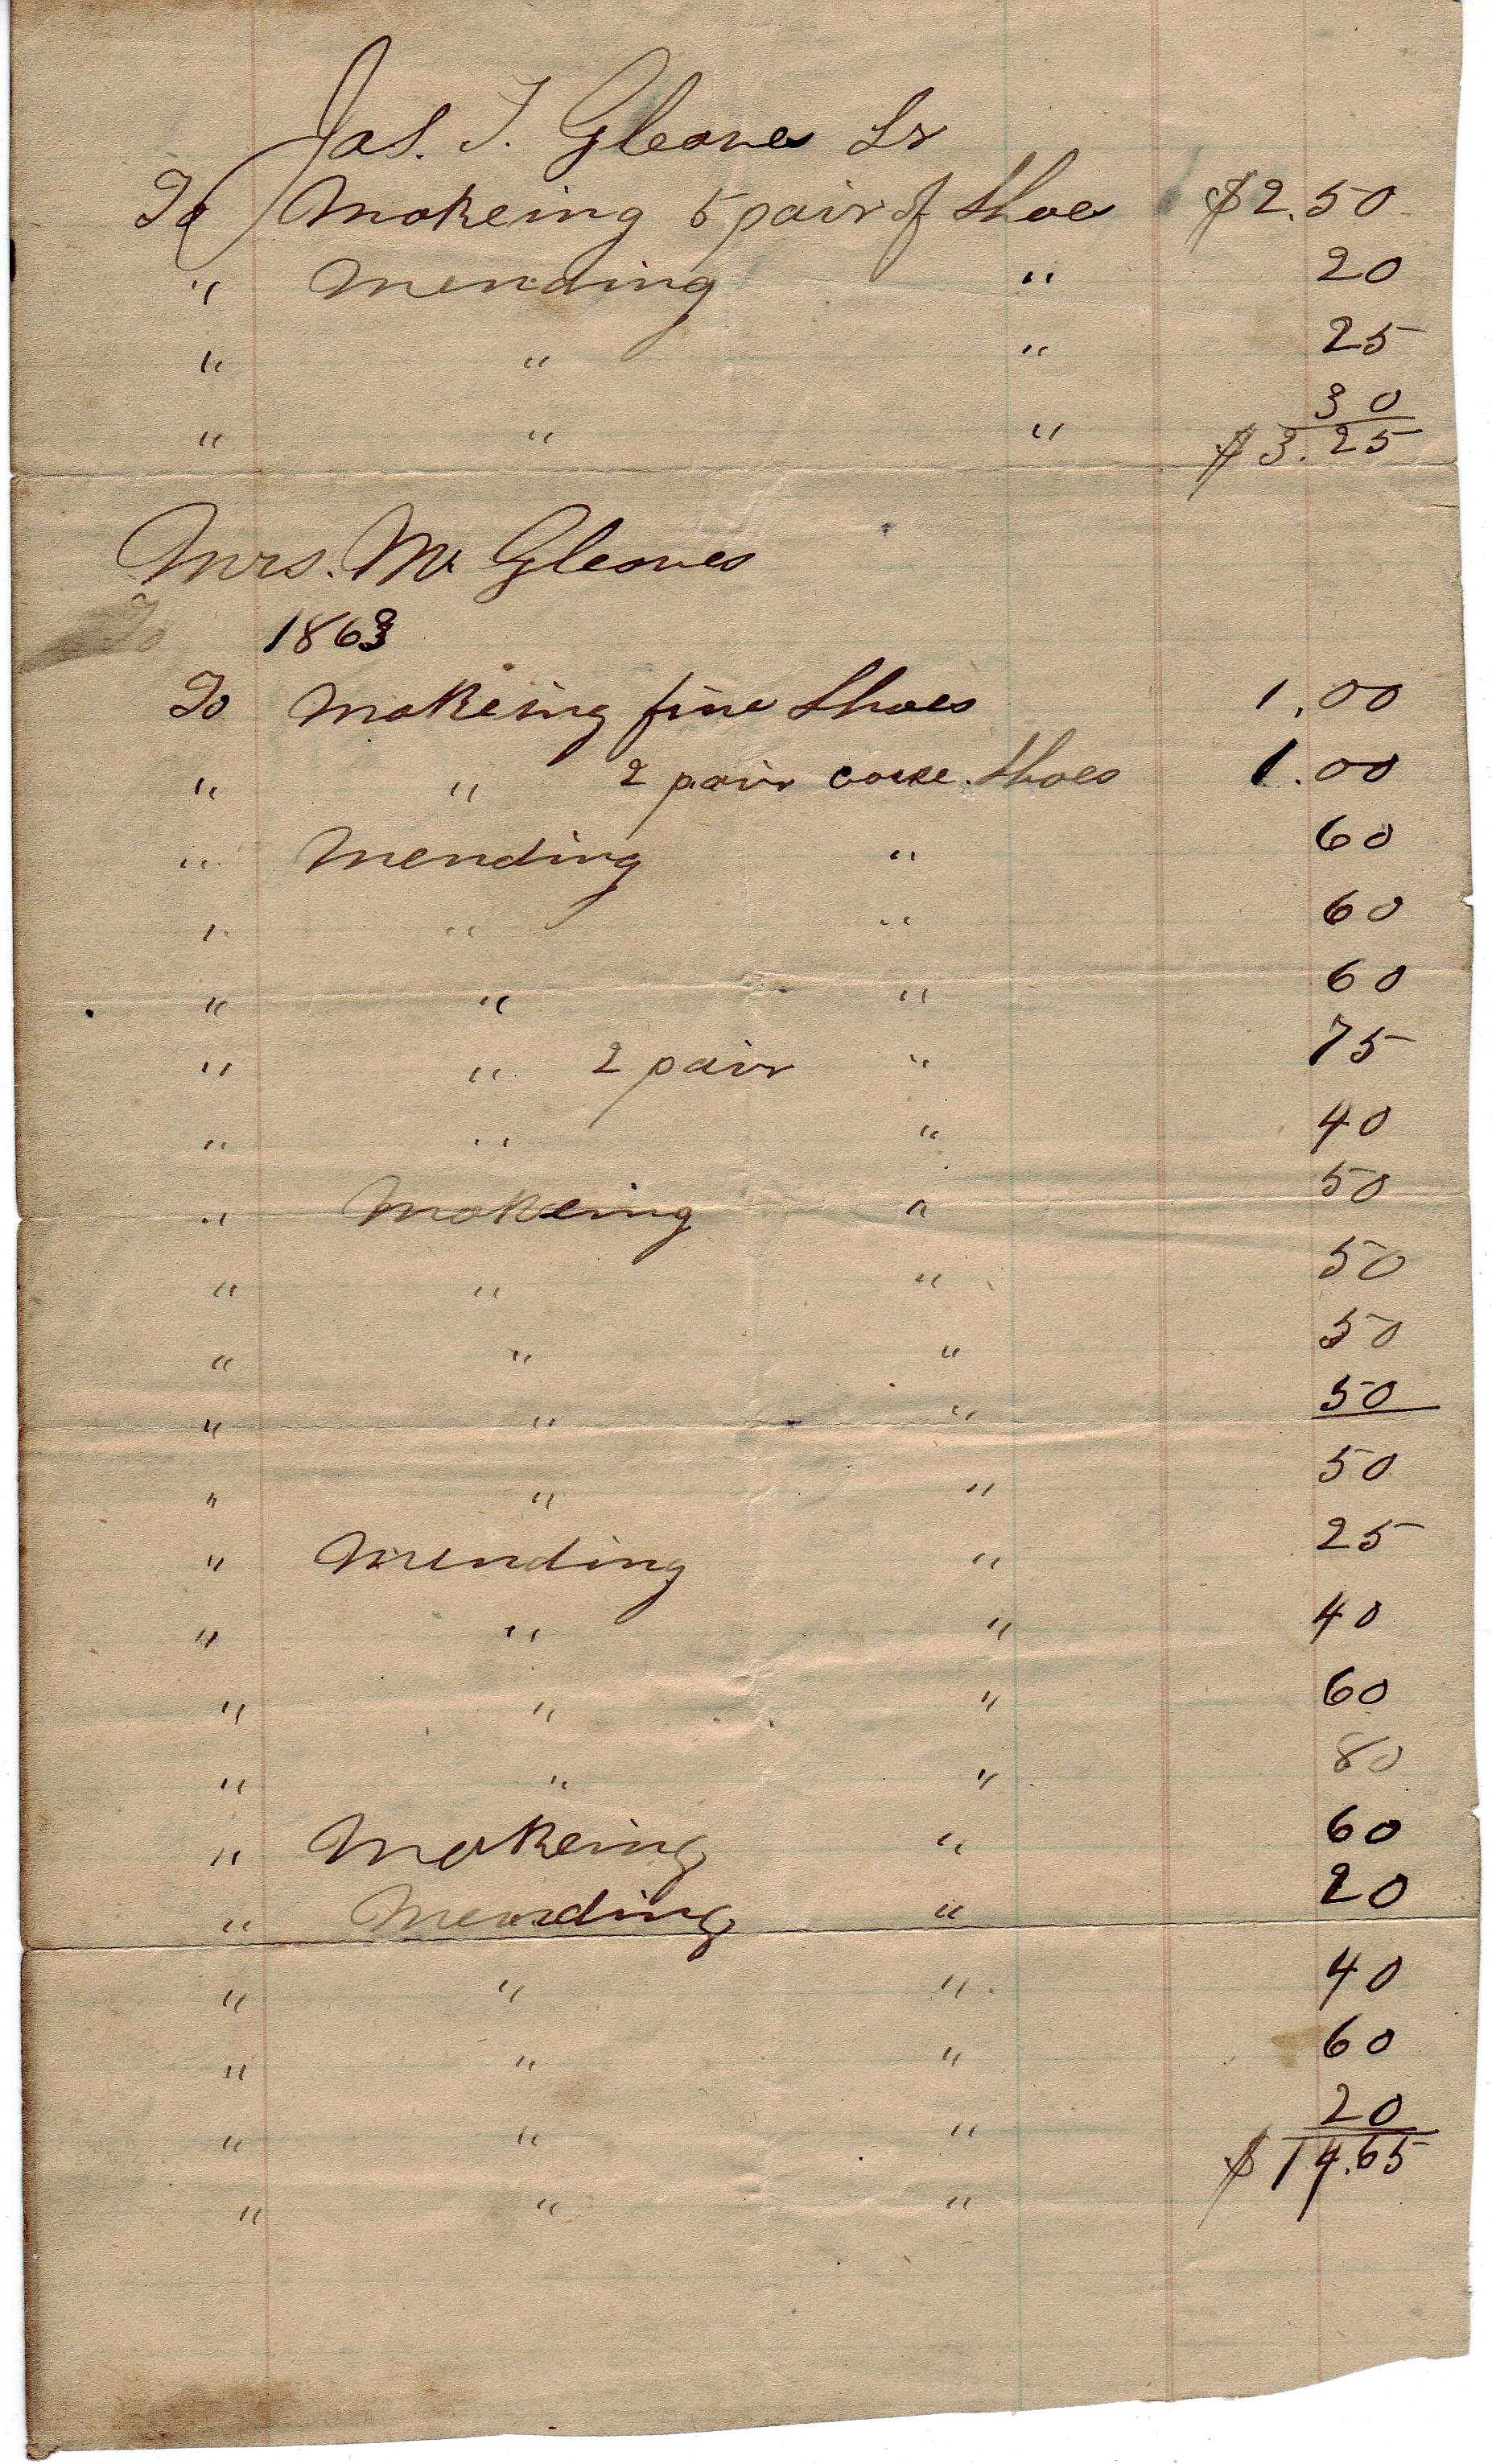 Jas. T. Gleaves Dr
To Makeing 5 pair of Shoes $2.50
" Mending " 20
" " " 25
" " " 30
$3.25
Mrs. M Gleaves
To 1863
To Makeing fine Shoes 1.00
" " 2 pair corse Shoes 1.00
" Mending " 60
" " " 60
" " " 60
" " 2 pair " 75
" " " 40
" Makeing " 50
" " " 50
" " " 50
" " " 50
" " " 50
" Mending " 25
" " " 40
" " " 60
" " " 80
" Makeing " 60
" Mending " 20
" " " 40
" " " 60
" " " 20
$14.65
" " "